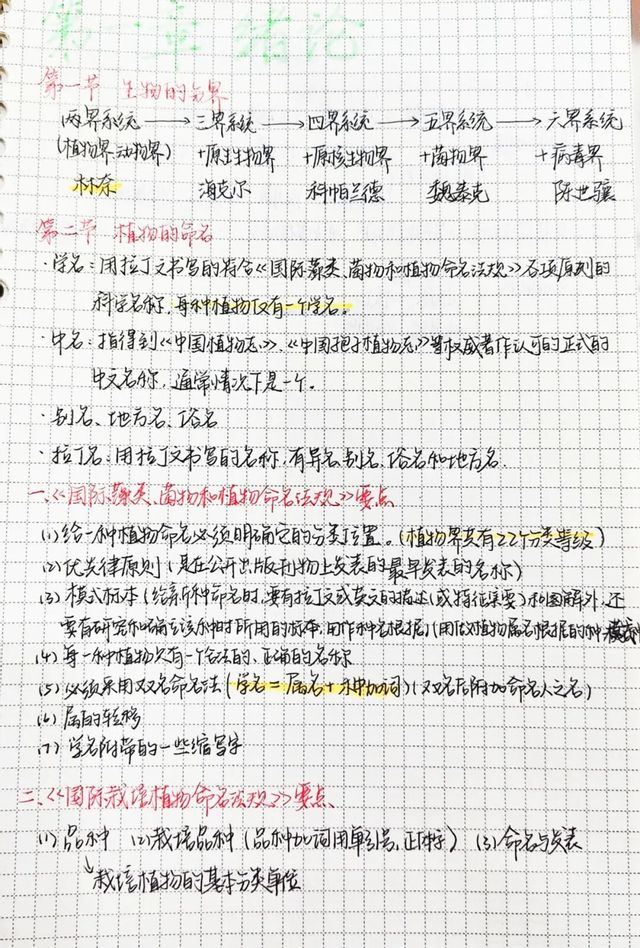 第一章 绪论
第一节 生物的分界
两界系统 → 三界系统 → 四界系统 → 五界系统 → 六界系统
(植物界动物界) +原生生物界 +原核生物界 +菌物界 +病毒界
林奈 海克尔 科帕兰德 魏泰克 陈世骧
第二节 植物的命名
·学名：用拉丁文书写的符合《国际藻类、菌物和植物命名法规》各项原则的
科学名称，每种植物仅有一个学名。
·中名：指得到《中国植物志》、《中国孢子植物志》等权威著作认可的正式的
中文名称，通常情况下是一个。
·别名、地方名、俗名
·拉丁名：用拉丁文书写的名称，有异名、别名、俗名和地方名.
一、《国际藻类、菌物和植物命名法规》要点
(1)给一种植物命名必须明确它的分类位置。(植物界共有22个分类等级)
(2)优先律原则(是在公开出版刊物上发表的最早发表的名称)
(3)模式标本(给新种命名时，要有拉丁文或英文的描述(或特征集要)和图解外，还
要有研究和确立该种时所用的标本，用作种名根据)(用做植物属名根据的种 模式
(4)每一种植物只有一个合法的、正确的名称
(5)必须采用双名命名法(学名=属名+种加词)(双名后附加命名人之名)
(6)属的转移
(7)学名附带的一些缩写字
二、《国际栽培植物命名法规》要点、
(1)品种 (2)栽培品种(品种加词用单引号，正体) (3)命名与发表
↳栽培植物的基本分类单位